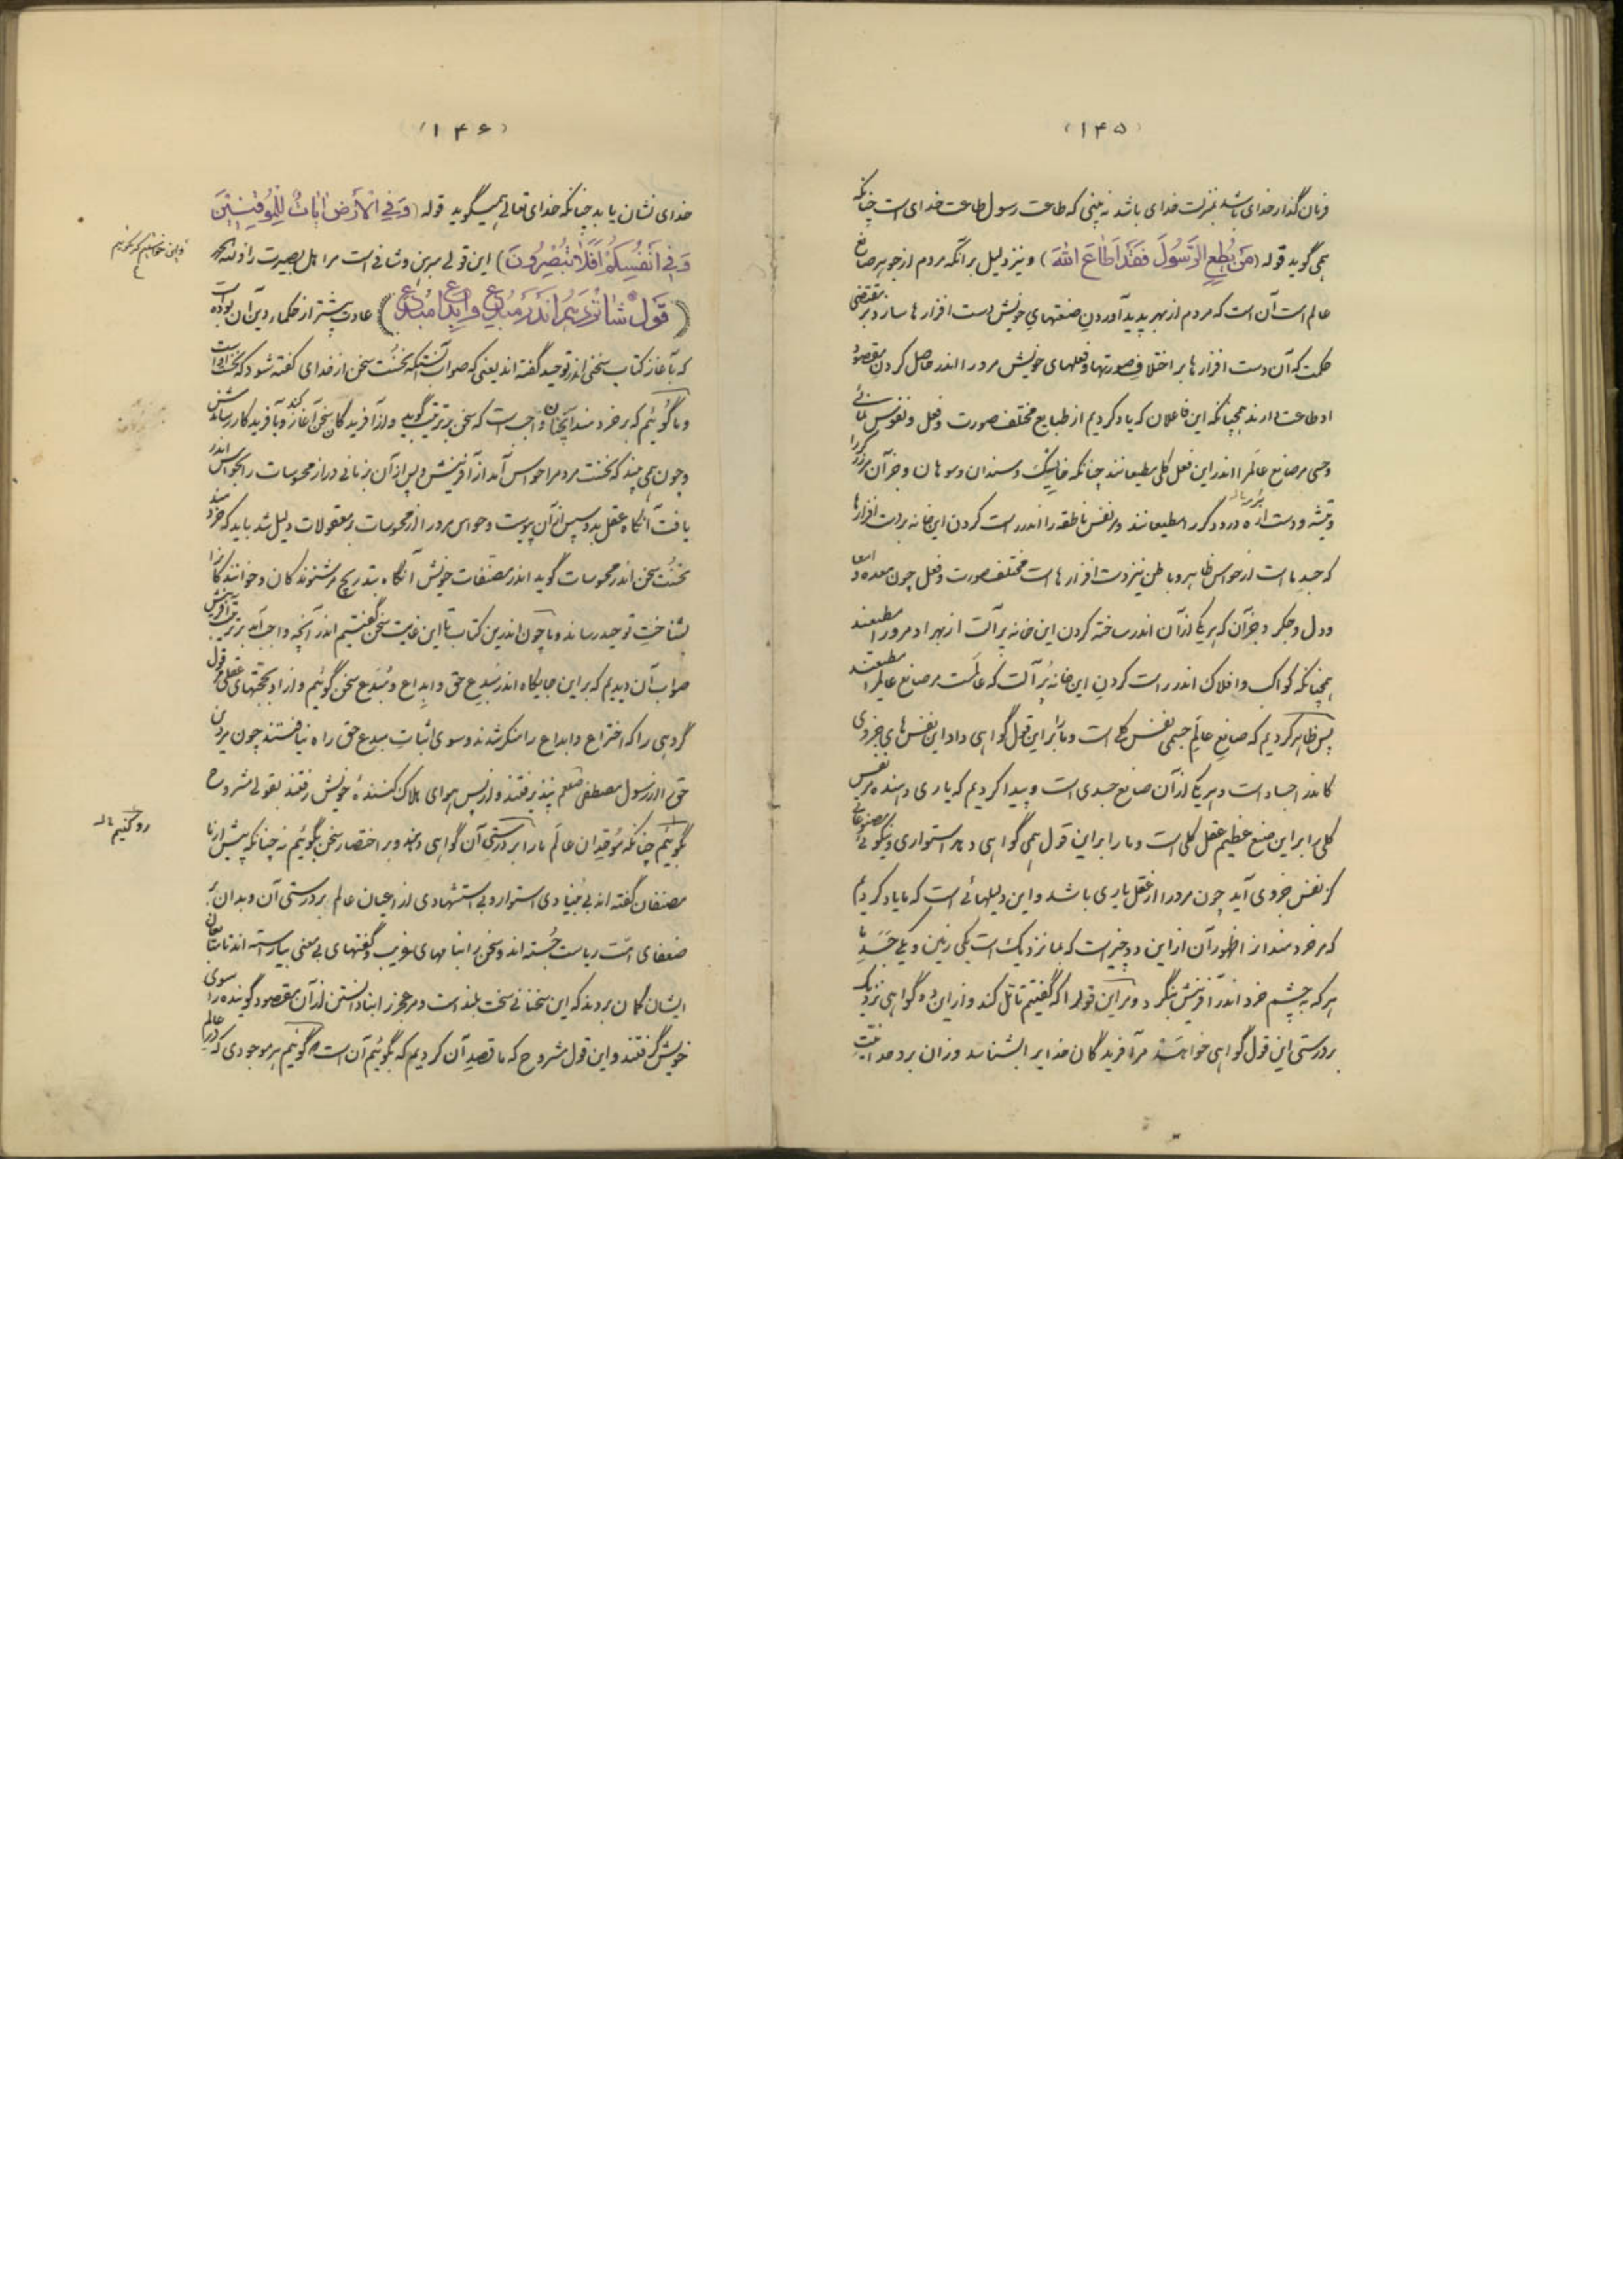 (۱۴۵)
فرمان گذار خدای باشد بمنزلت خدای باشد نه بینی که طاعت رسول طاعت خدای است چنانکه
همی گوید قوله (مَن یُطِعِ الرَّسُولَ فَقَد اَطاعَ اللهَ) و نیز دلیل بر آنکه مردم از جوهر صانع
عالم است آن است که مردم از بهر پدید آوردن صنعتهای خویش دست افزارها سازد بر مقتضی
حکمت که آن دست افزارها بر اختلاف صورتها و فعلهای خویش مرورا اندر حاصل کردن مقصود
او طاعت دارند همچنانکه این فاعلان که یاد کردیم از طبایع مختلف صورت و فعل و نفوس نمائی
و حسی مر صانع عالم را اندر این فعل کلی مطیعانند چنانکه خایسک و سندان و سوهان و جز آن مر زرگر را
و تیشه و دست اره درودگر را مطیعانند و مر نفس ناطقه را اندر راست کردن این خانه بر دست افزارها
که جسد ما است از حواس ظاهر و باطن نیز دست افزارهاست مختلف صورت و فعل چون معده و امعا
و دل و جگر و جز آن که هر یکی از آن اندر ساخته کردن این خانه پر آلت از بهر او مرورا مطیعند
همچنانکه کواکب و افلاک اندر راست کردن این خانه پُر آلت که عالمست مر صانع عالم را مطیعند
پس ظاهر کردیم که صانع عالم جسمی نفس کلی است و ما را بر این قول گواهی داد این نفس های جزوی
کاندر اجساد است و هر یکی از آن صانع جسدی است و پیدا کردیم که یاری دهنده مر نفس
کلی را بر این صنع عظیم عقل کلی است و ما را بر این قول همی گواهی دهد استواری و نیکوئی مصنوعاتی
کز نفس جزوی آید چون مرورا از عقل یاری باشد و این دلیلهائی است که ما یاد کردیم
که مر خردمند را از اظهور آن از این دو چیز است که بما نزدیک است یکی زمین و یکی جسد ما
هر که به چشم خرد اندر آفرینش بنگرد و مر این قول را که گفتیم تأمل کند و از این دو گواهی نزدیک
بر درستی این قول گواهی خواهد مر آفریدگان خدایرا بشناسد و زان بر وحدانیت
(۱۴۶)
خدای نشان یابد چنانکه خدای تعالی همیگوید قوله (وَ فِی الاَرضِ ایاتٌ لِلمُوقِنِینَ
وَ فِی اَنفُسِکُم اَفَلا تُبصِرُونَ) این قولی مبرهن و شافی است مر اهل بصیرت را والله
(قول شانزدهم اندر مبدع و ابداع مُبدَع) عادت بیشتر از حکماء دین آن بوده است
که به آغاز کتاب سخنی اندر توحید گفته اند یعنی که صواب آنستکه نخست سخن از خدای گفته شود که نخست اوست
و ما گوئیم که بر خردمند ایچنان واجب است که سخن بر ترتیب گوید و از آفریدگان سخن آغاز کند و بآفریدگار رساندش
و چون همی بیند که نخست مردم را حواس آمد از آفرینش و پس از آن بزمانی دراز محسوسات را بحواس اندر
یافت آنگاه عقل بدو سپس از آن پیوست و حواس مرورا از محسوسات بر معقولات دلیل شد باید که خردمند
نخست سخن اندر محسوسات گوید اندر مصنفات خویش آنگاه بتدریج مر شنوندگان و خوانندگان را
بشناخت توحید رساند و ما چون اندرین کتاب تا این غایت سخن گفتیم اندر آنچه واجب آمد بر ترتیب آفرینش
صواب آن دیدیم که بر این جایگاه اندر مبدع حق و ابداع و مُبدَع سخن گوئیم و از او بحجتهای عقلی قول
گروهی را که اختراع و ابداع را منکر شدند و سوی اثبات مبدع حق راه نیافتند چون مر دین
حق را از رسول مصطفی صلعم نپذیرفتند و از پس هوای هلاک کنندۀ خویش رفتند بقولی مشروح
بگوئیم چنانکه موقدان عالم ما را بر درستی آن گواهی دهند و بر اختصار سخن بگوئیم نه چنانکه پیش از ما
مصنفان گفته اند بی بنیادی استوار و بی استشهادی از اعیان عالم بر درستی آن و بدان
ضعفای امت ریاست جُسته اند و سخن را بنامهای غریب و گفتهای بی معنی بیاراسته اند تا متابعان
ایشان گمان بردند که این سخنانی سخت بلند است و مر عجز را بنادانستن از آن مقصود گوینده را سوی
خویش گرفتند و این قول مشروح که ما قصد آن کردیم که بگوئیم آن است گوئیم هر موجودی که در این عالم
رد کنیم